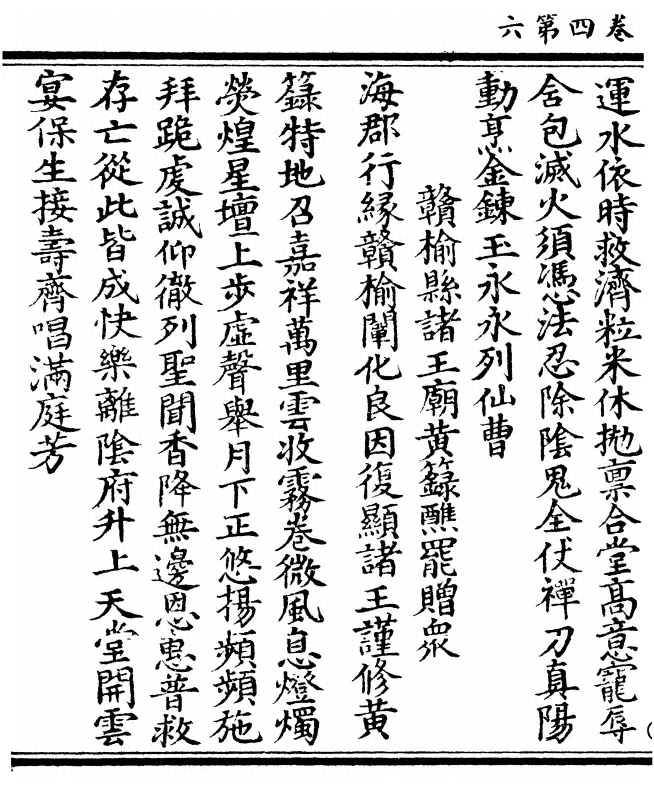 卷四第六
運水依時救濟粒米休抛禀合堂高意寵辱
舍包滅火須憑法忍除陰鬼全伏禪刀真陽
動烹金鍊玉永永列仙曹
贛榆縣諸王廟黃籙醮罷贈衆
海郡行緣贛榆闡化良因復顯諸王謹修黃
籙特地召嘉祥萬里雲收霧卷微風息燈燭
熒煌星壇上步虛聲舉月下正悠揚頻頻施
拜跪虔誠仰徹列聖聞香降無邊恩惠普救
存亡從此皆成快樂離陰府升上天堂開雲
宴保生接壽齊唱滿庭芳